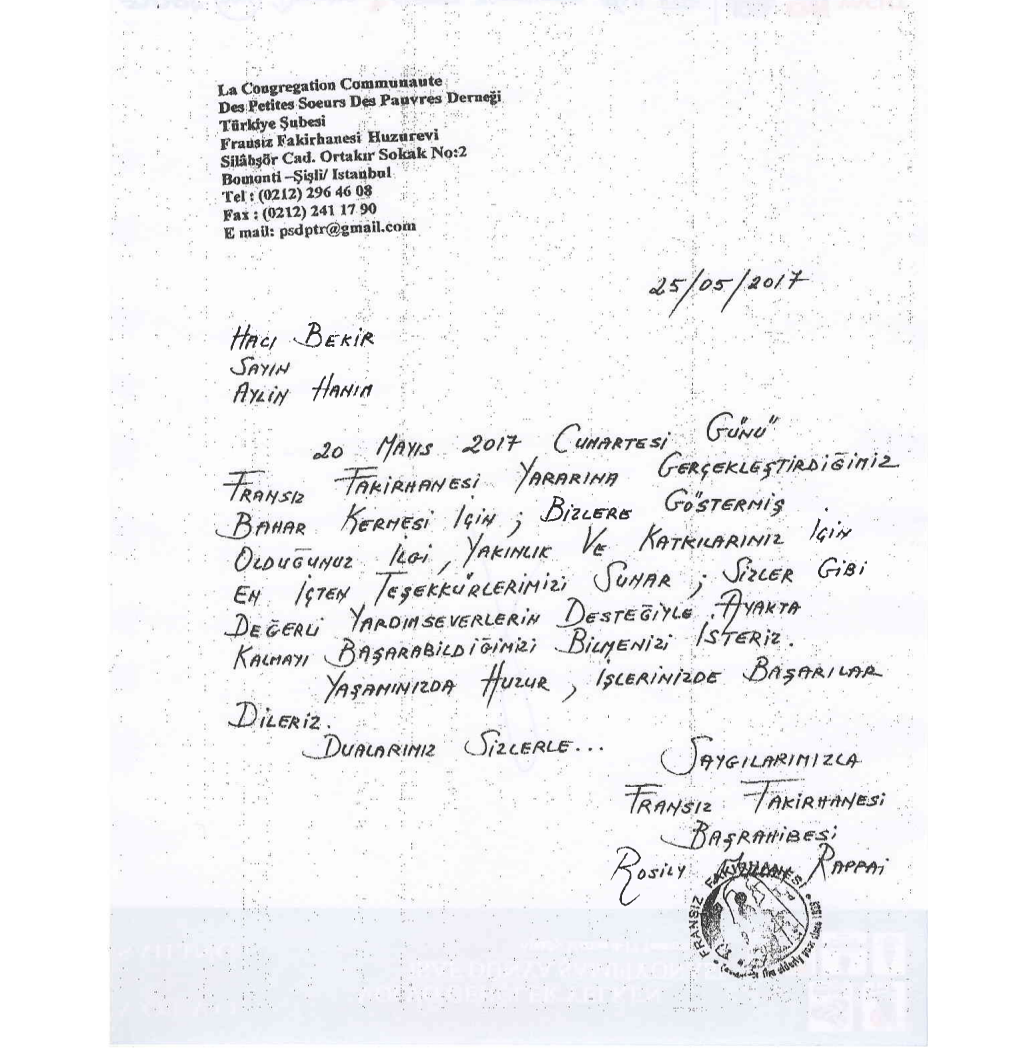 La Congregation Communaute
Des Petites Soeurs Des Pauvres Derneği
Türkiye Şubesi
Fransız Fakirhanesi Huzurevi
Silâhşör Cad. Ortakır Sokak No:2
Bomonti –Şişli/ Istanbul
Tel : (0212) 296 46 08
Fax : (0212) 241 17 90
E mail: psdptr@gmail.com
25/05/2017
HACI BEKİR
SAYIN
AYLİN HANIM
20 MAYIS 2017 CUMARTESİ GÜNÜ
FRANSIZ FAKİRHANESİ YARARINA GERÇEKLEŞTİRDİĞİMİZ
BAHAR KERMESİ İÇİN ; BİZLERE GÖSTERMİŞ
OLDUĞUNUZ İLGİ , YAKINLIK VE KATKILARINIZ İÇİN
EN İÇTEN TEŞEKKÜRLERİMİZİ SUNAR ; SİZLER GİBİ
DEĞERLİ YARDIMSEVERLERİN DESTEĞİYLE AYAKTA
KALMAYI BAŞARABİLDİĞİMİZİ BİLMENİZİ İSTERİZ.
YAŞAMINIZDA HUZUR , İŞLERİNİZDE BAŞARILAR
DİLERİZ.
DUALARIMIZ SİZLERLE...
SAYGILARIMIZLA
FRANSIZ FAKİRHANESİ
BAŞRAHİBESİ
ROSILY RAPPAI
FRANSIZ FAKİRHANESİ
the elderly poor since